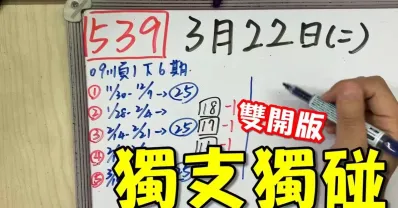 539 3月22日(二)
09順1下6期
① 11/30-12/9→㉕
② 1/28-2/4→ 18 -1
③ 2/14-2/21→㉕ 19 -1
④
⑤
雙開版
獨支獨碰